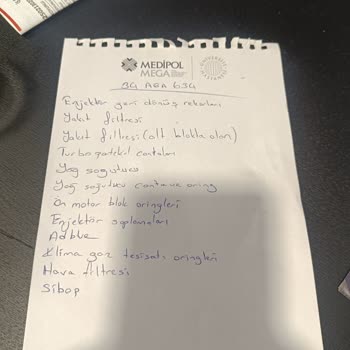 MEDİPOL
MEGA
34 ABA 634
Enjektör geri dönüş rekorları
Yakıt filtresi
Yakıt filtresi (alt blokta olan)
Turbo partikül contaları
Yağ soğutucu
Yağ soğutucu conta ve oring
Ön motor blok oringleri
Enjektör saplamaları
Adblue
Klima gaz tesisatı oringleri
Hava filtresi
Sibop